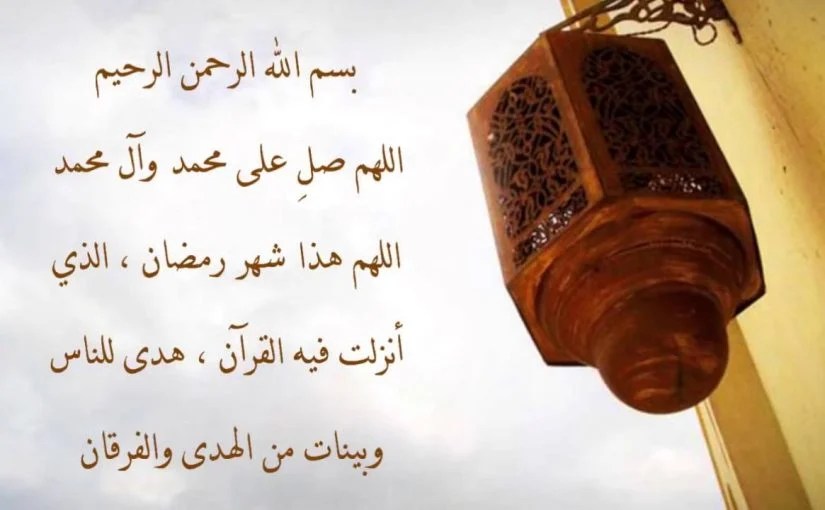 بسم الله الرحمن الرحيم
اللهم صلِ على محمد وآل محمد
اللهم هذا شهر رمضان ، الذي
أنزلت فيه القرآن ، هدى للناس
وبينات من الهدى والفرقان